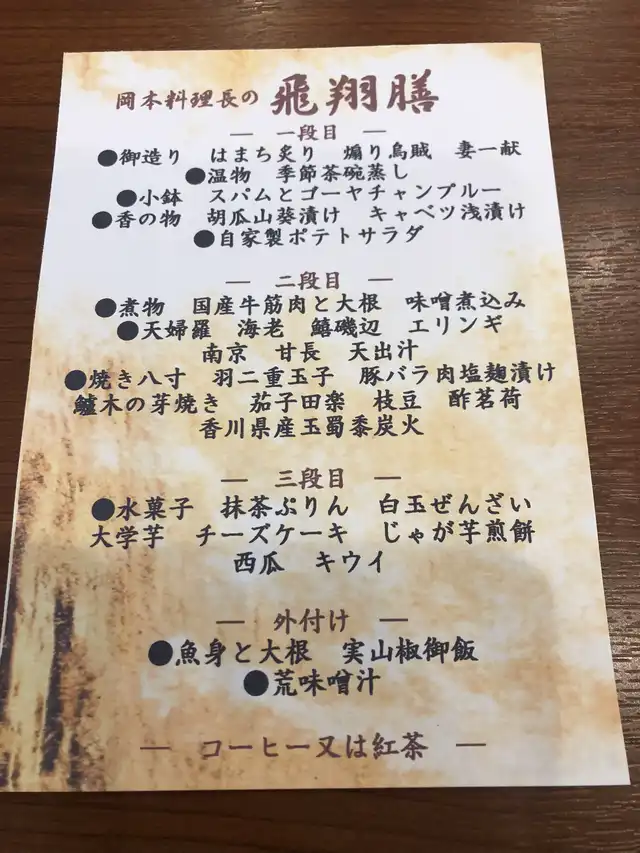 岡本料理長の 飛翔膳
― 一段目 ―
●御造り はまち炙り 煽り烏賊 妻一献
●温物 季節茶碗蒸し
●小鉢 スパムとゴーヤチャンプルー
●香の物 胡瓜山葵漬け キャベツ浅漬け
●自家製ポテトサラダ
― 二段目 ―
●煮物 国産牛筋肉と大根 味噌煮込み
●天婦羅 海老 鱚磯辺 エリンギ
南京 甘長 天出汁
●焼き八寸 羽二重玉子 豚バラ肉塩麹漬け
鱸木の芽焼き 茄子田楽 枝豆 酢茗荷
香川県産玉蜀黍炭火
― 三段目 ―
●水菓子 抹茶ぷりん 白玉ぜんざい
大学芋 チーズケーキ じゃが芋煎餅
西瓜 キウイ
― 外付け ―
●魚身と大根 実山椒御飯
●荒味噌汁
― コーヒー又は紅茶 ―